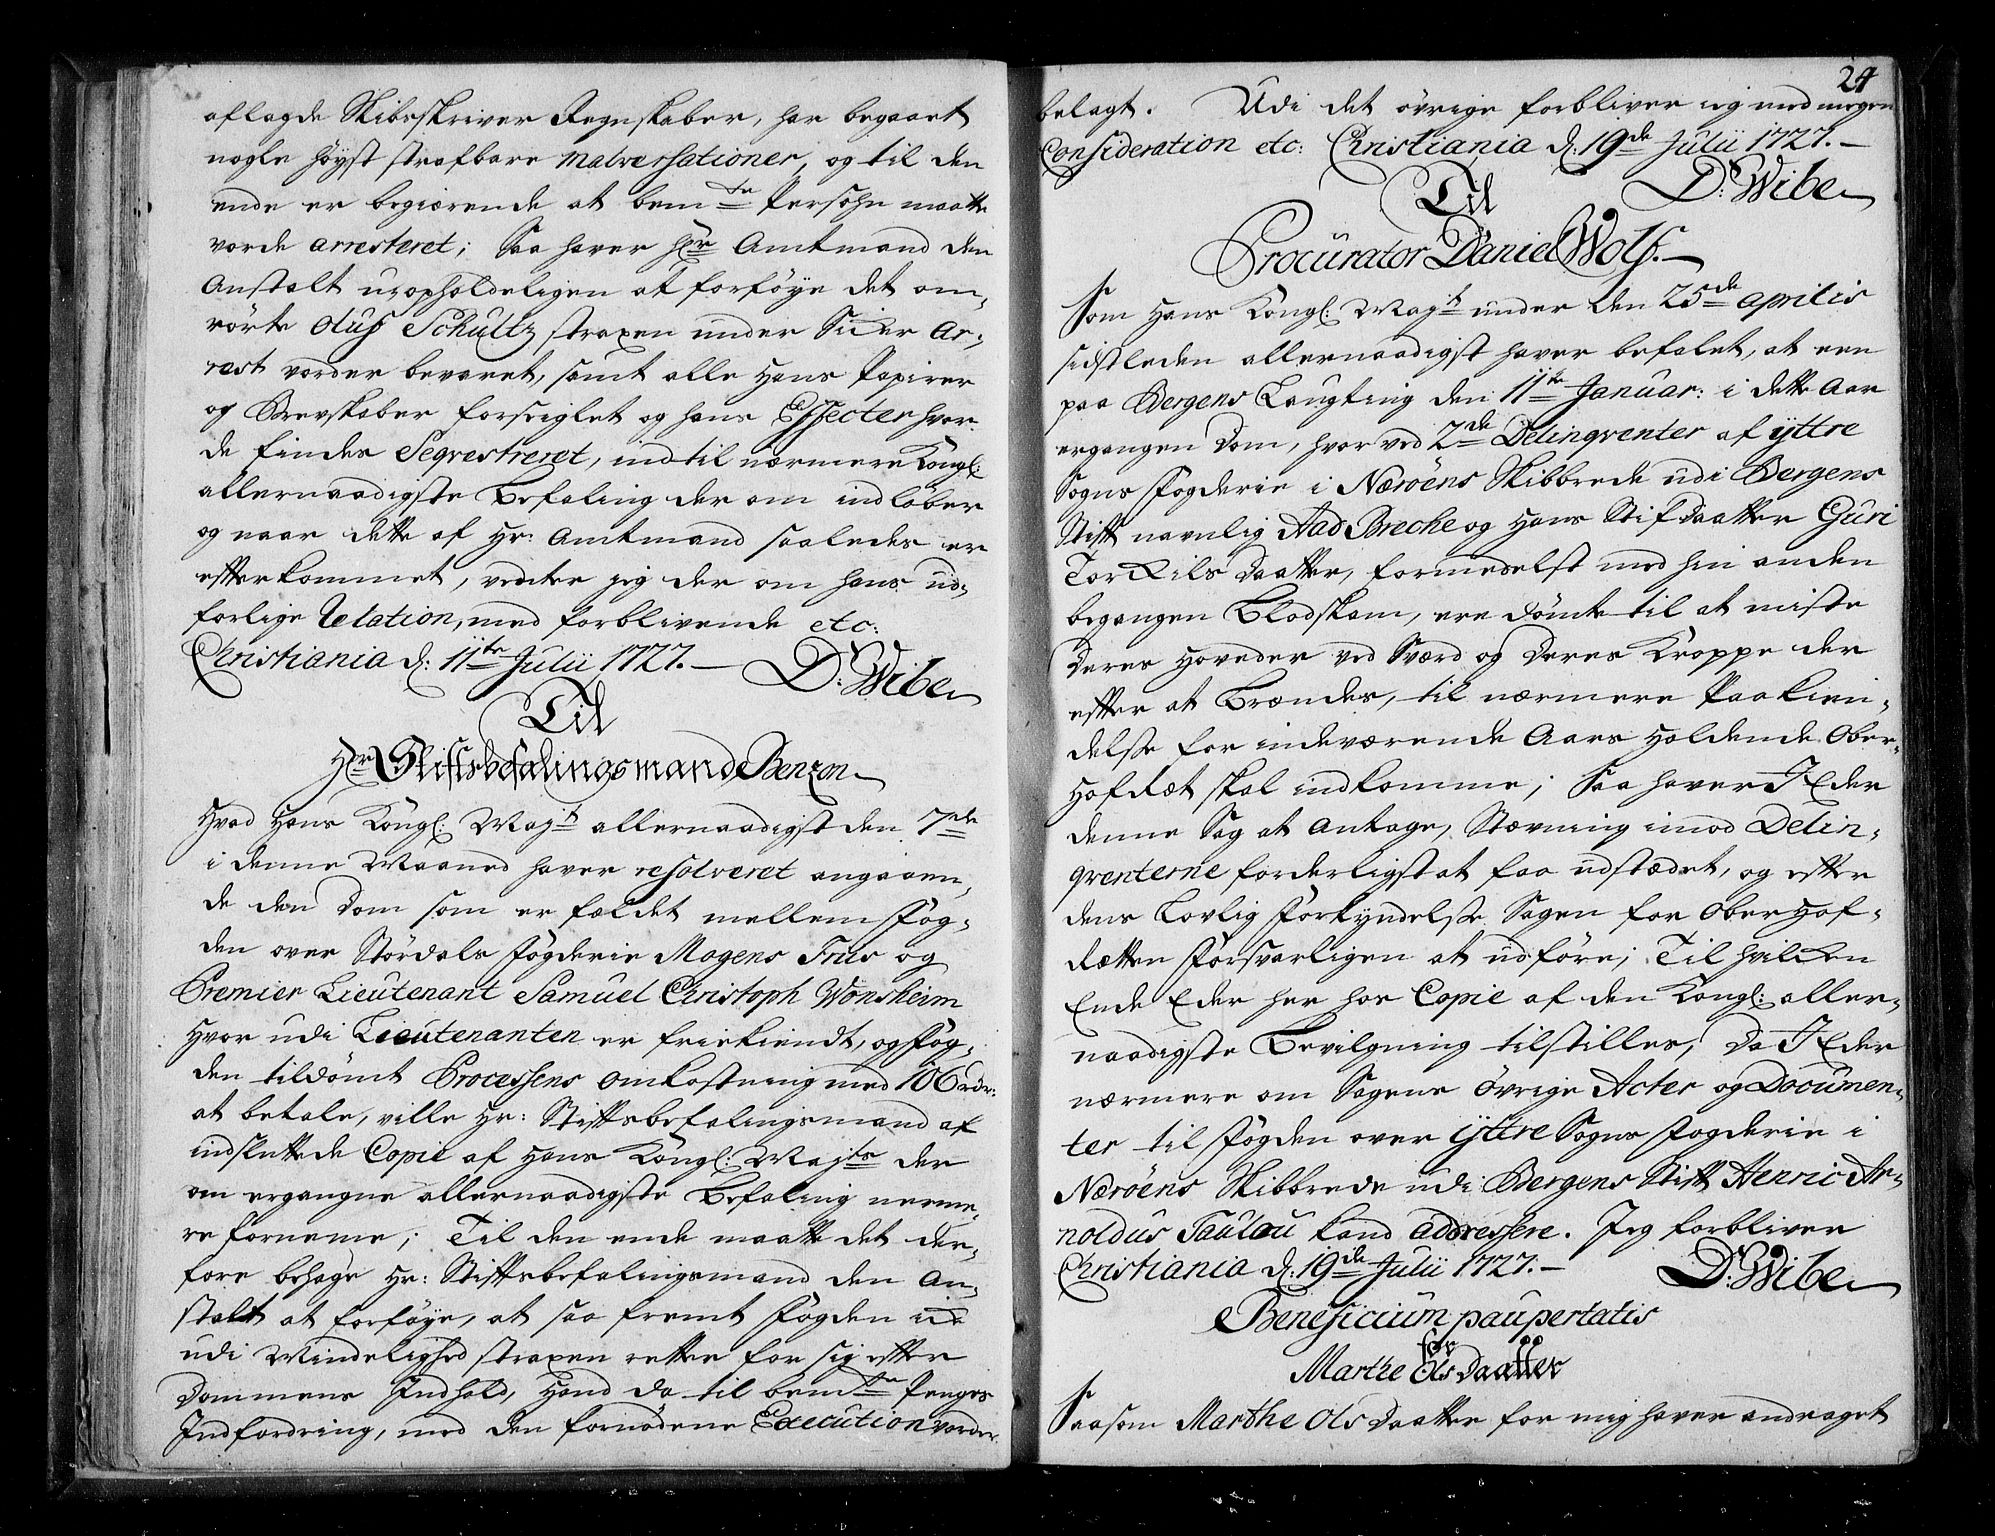 aflagde Skibsskriver Regnskaber, har begaaet
nogle høyst strafbare Malversationer, og til den
ende er begiærende at bemte Persohn maatte
vorde arresteret; Saa haver Hr Amtmand den
Anstalt uopholdeligen at forføye det om-
rørte Oluf Schultz straxen under Sicker Ar-
rest vorder bevaret, samt alle Hans Papirer
og Brevskaber forseiglet og hans Effecter hvor
de findes Seqvestreret, indtil nærmere Kongl:
allernaadigste Befaling der om indløber
og naar dette af Hr: Amtmand saaledes er
efterkommet, venter jeg der om hans ud-
forlige Relation, med forblivende etc:
Christiania d: 11te Julii 1727. — D: Wibe
Til
Hr Stiftsbefalingsmand Benzon
Hvad Hans Kongl: Majt allernaadigst den 7de
i denne Maaned haver resolveret angaaen-
de den Dom som er fældet mellem Fog-
den over Stördals Fögderie Mogens Friis og
Premier Lieutenant Samuel Christoph Wonsheim
Hvor udi Lieutenanten er friekiendt, og Fog-
den tildömt Processens Omkostning med 106 rdr:
at betale, ville Hr: Stiftsbefalingsmand af
indsluttede Copie af Hans Kongl: Majts der
om ergangne allernaadigste Befaling nerme-
re fornemme; Til den ende maatte det der-
fore behage Hr: Stiftsbefalingsmand den An-
stalt at forföye, at saa fremt Fogden ic
udi Mindelighed straxen retter for sig efter
Dommens Indhold, Hand da til bemte Penges
Indfordring, med den fornödene Execution vorder
24
belagt. Udi det övrige forbliver ieg med megen
Consideration etc: Christiania d: 19de Julii 1727. —
D: Wibe
Til
Procurator Daniel Wolf. —
Som Hans Kongl: Majt under den 25de Aprilis
sidstleden allernaadigst haver befalet, at een
paa Bergens Laugting den 11te Januar: i dette Aar
ergangen Dom, hvor ved 2de Delinqventer af yttre
Sogns Fögderie i Næröens Skibbrede udi Bergens
Stift navnlig Aad Breche og Hans Stif Daatter Guri
Torkils Daatter, formedelst med hin anden
begangen Blodskam, ere dömte til at miste
Deres Hoveder ved Sværd og Deres Kroppe der
efter at Brændes, til nærmere Paakien-
delse for indeværende Aars Holdende Ober-
Hofræt skal indkomme; Saa haver I Eder
denne Sag at antage, Stævning imod Delin-
qventerne forderligst at faa udstædet, og efter
dens Lovlig Forkyndelse Sagen for Ober Hof-
rætten Forsvarligen at udföre; Til hvilken
Ende Eder her hos Copie af den Kongl: aller-
naadigste Bevilgning tilstilles, Da I Eder
nærmere om Sagens övrige Acter og Documen-
ter til Fögden over yttre Sogns Fogderie i
Næröens Skibbrede udi Bergens Stift Henric Ar-
noldus Taulou kand addressere. Jeg forbliver
Christiania d: 19de Julii 1727. — D: Wibe
Beneficium paupertatis
for
Marthe Ols Daatter
Saasom Marthe Ols Daatter for mig haver andraget